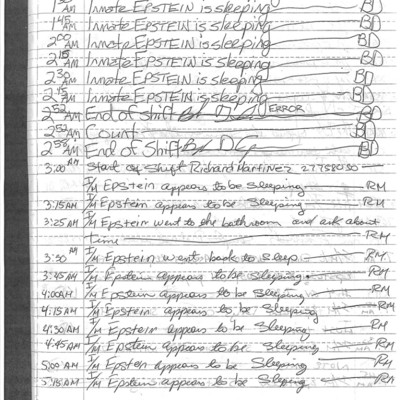 1:30 AM Inmate EPSTEIN is sleeping BD
1:45 AM Inmate EPSTEIN is sleeping BD
2:00 AM Inmate EPSTEIN is sleeping BD
2:15 AM Inmate EPSTEIN is sleeping BD
2:30 AM Inmate EPSTEIN is sleeping BD
2:45 AM Inmate EPSTEIN is sleeping BD
2:52 AM End of shift ERROR BD
2:52 AM Count BD
2:56 AM End of Shift BD
3:00 AM Start of Shift Richard Martinez
I/M Epstein appears to be sleeping RM
3:15AM I/M Epstein appears to be Sleeping RM
3:25AM I/M Epstein went to the bathroom and ask about
time RM
3:30 AM I/M Epstein went back to sleep RM
3:45AM I/M Epstein appears to be sleeping. RM
4:00AM I/M Epstein appears to be Sleeping RM
4:15AM I/M Epstein appears to be Sleeping RM
4:30AM I/M Epstein appears to be Sleeping RM
4:45AM I/M Epstein appears to be Sleeping RM
5:00AM I/M Epstein appears to be Sleeping RM
5:15AM I/M Epstein appears to be Sleeping RM